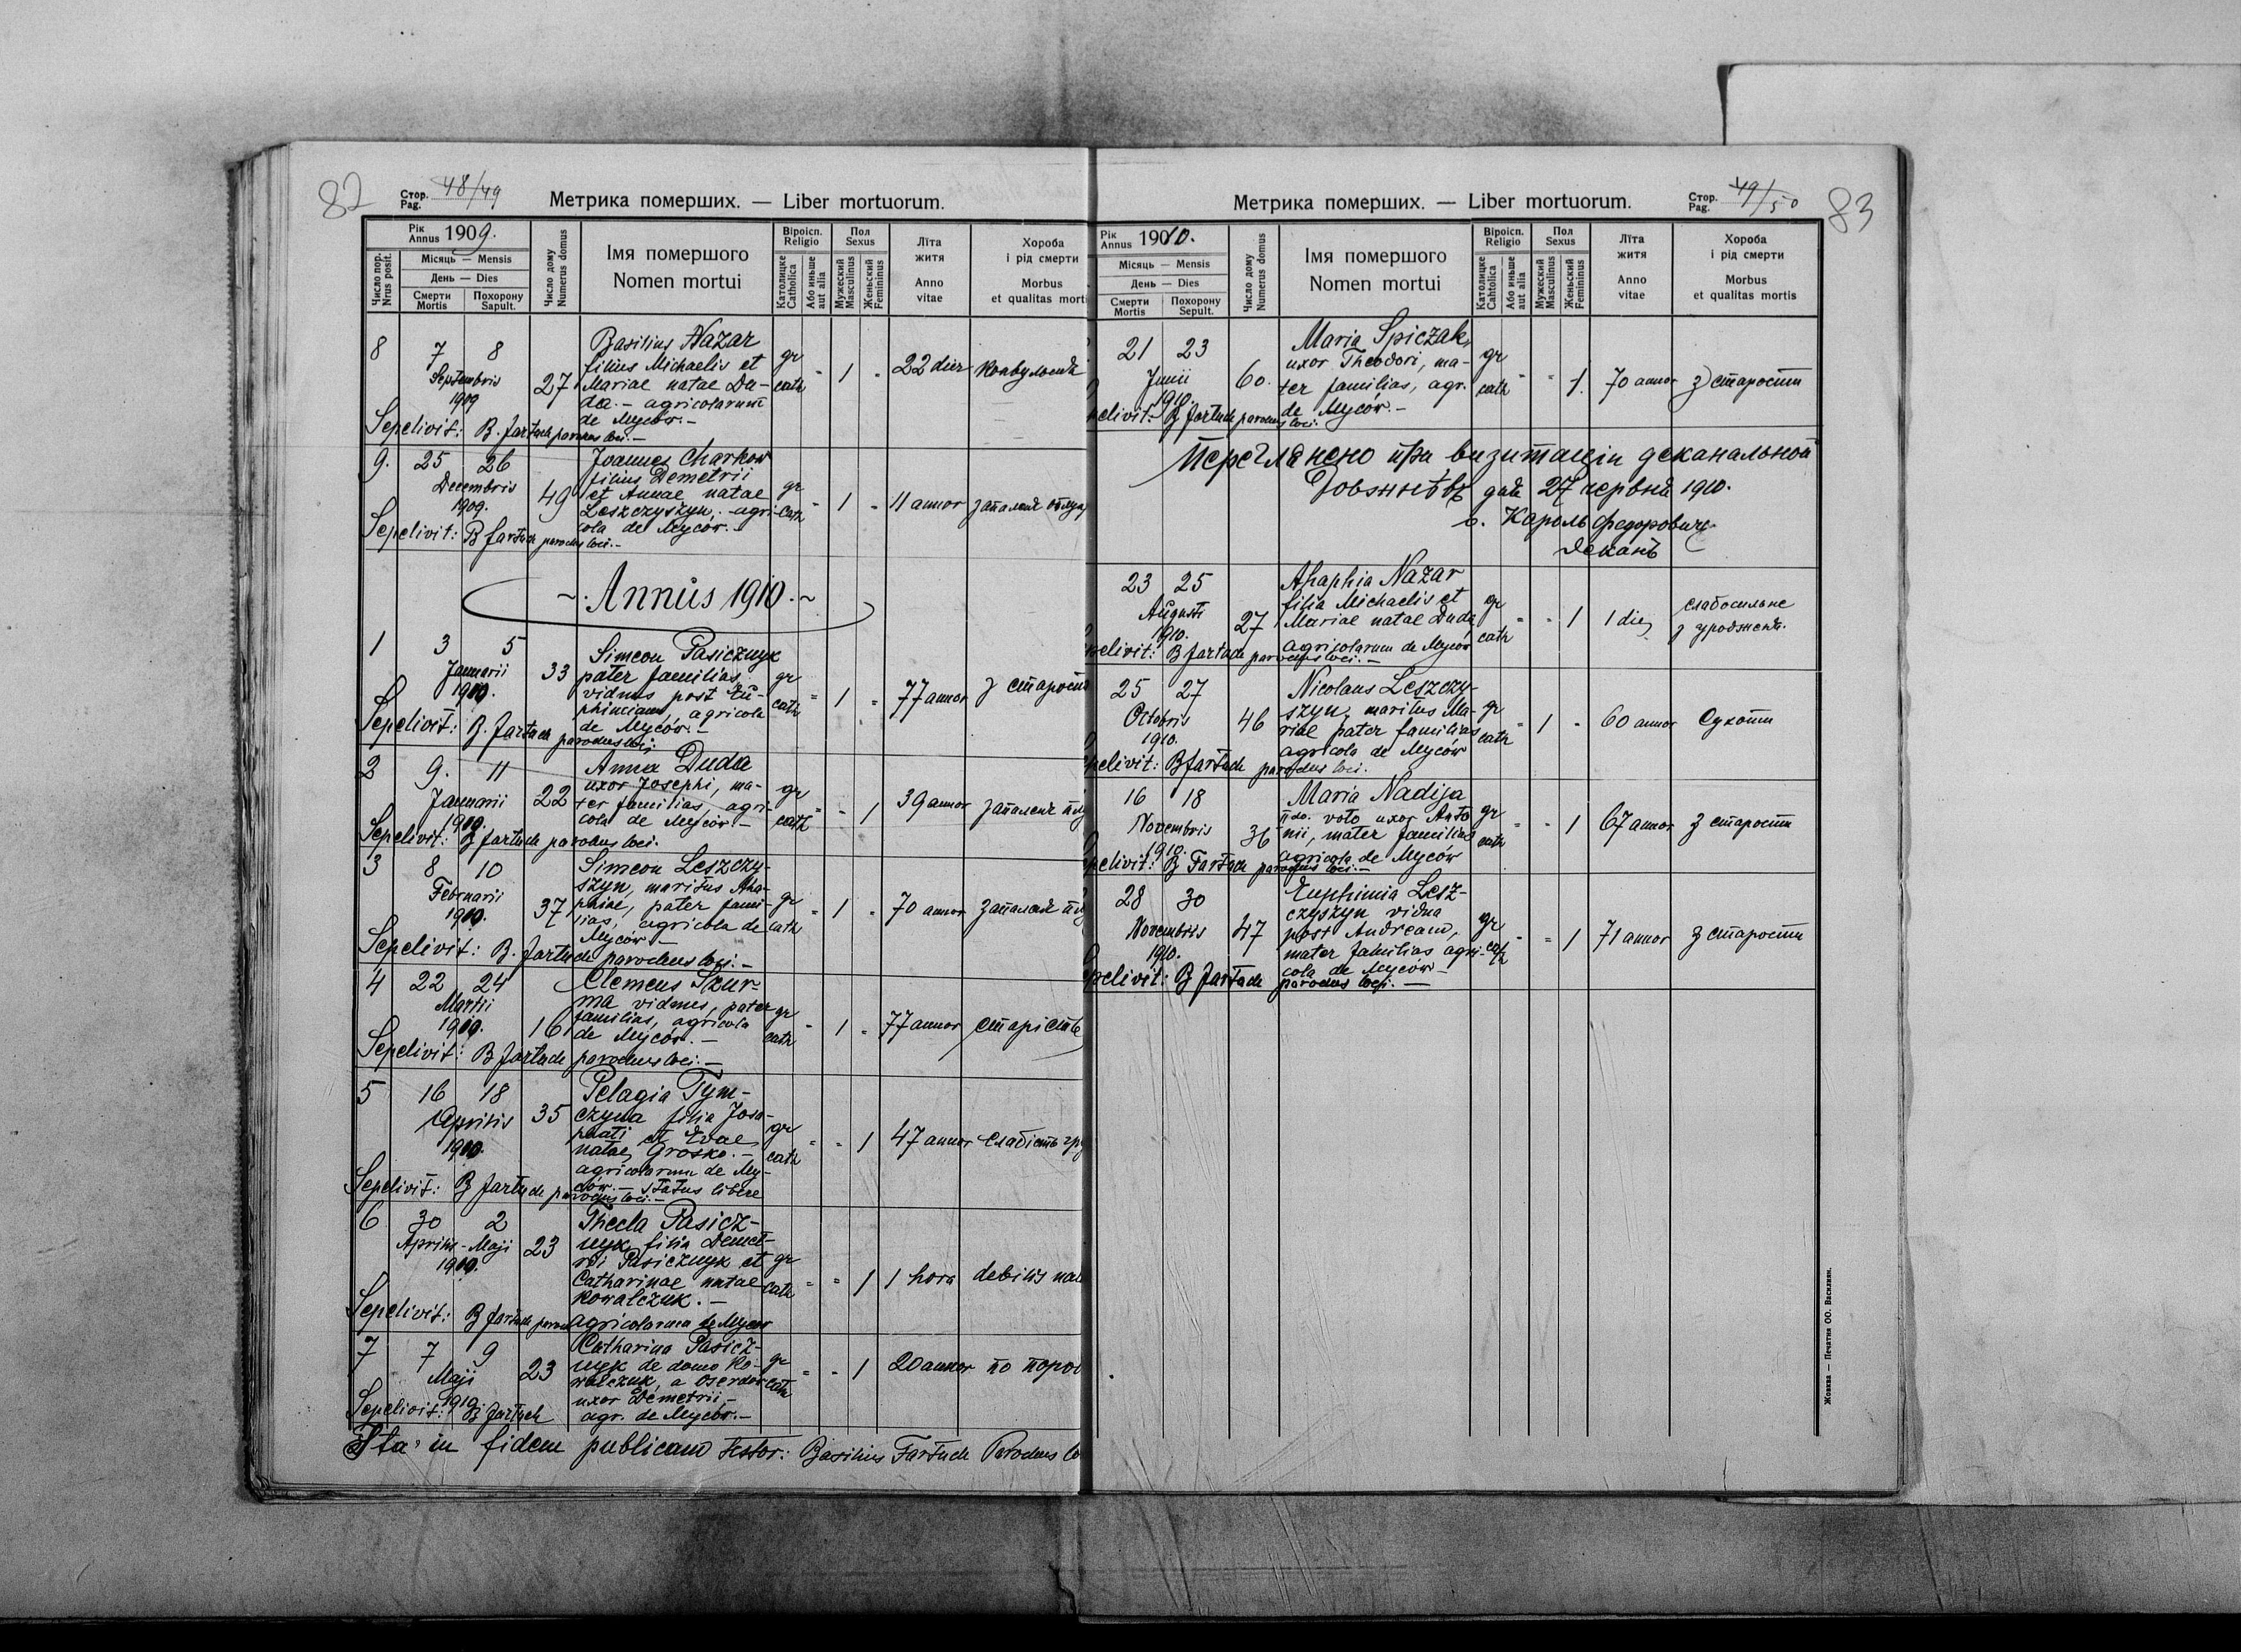 82
Стор. Pag. 48/49
Метрика померших. — Liber mortuorum.
Рік Annus 1909.
Число пор. Nrus posit.
Місяць — Mensis
День — Dies
Смерти Mortis
Похорону Sapult.
Число дому Numerus domus
Імя помершого
Nomen mortui
Віроісп. Religio
Католицке Catholica
Або иньше aut alia
Пол Sexus
Мужеский Masculinus
Женьский Femininus
Літа житя
Anno vitae
Хороба і рід смерти
Morbus et qualitas morti
8 7 8 Septembris 1909 27
Basilius Nazar
filius Michaelis et
Mariae natae Du-
da. - agricolarum
de Myców. -
gr cath " 1 " 22 dier
Sepelivit: B. Fartuch parochus loci. -
9. 25 26 Decembris 1909. 49
Joannes Charkow
filius Demetrii
et Annae natae
Leszczyszyn. - agri-
cola de Myców.
gr cath " 1 " 11 annor
Sepelivit: B Fartuch parochus loci. -
~ Annus 1910. ~
1 3 5 Januarii 1910. 33
Simeon Pasicznyk
pater familias
viduus post Eu-
phimiam, agricola
de Myców. -
gr cath " 1 " 77 annor з старости
Sepelivit: B. Fartuch parochus loci.
2 9. 11 Januarii 1910. 22
Anna Duda
uxor Josephi, ma-
ter familias, agri-
cola de Myców -
gr cath " " 1 39 annor
Sepelivit: B Fartuch parochus loci.
3 8 10 Februarii 1910. 37
Simeon Leszczy-
szyn, maritus Aha-
phiae, pater fami-
lias, agricola de
Myców -
gr cath " 1 " 70 annor
Sepelivit: B. Fartuch parochus loci. -
4 22 24 Martii 1910. 16
Clemens Szur-
ma viduus, pater
familias, agricola
de Myców. -
gr cath " 1 " 77 annor старість
Sepelivit: B Fartuch parochus loci. -
5 16 18 Aprilis 1910. 35
Pelagia Tym-
czyna filia Josa-
phati et Evae
natae Grosko. -
agricolarum de My-
ców. - status libere
gr cath " " 1 47 annor слабість
Sepelivit: B Fartuch parochus loci. -
6 30 2 Aprilis - Maji 1910. 23
Thecla Pasicz-
nyk, filia Demet-
rii Pasicznyk et
Catharinae natae
Kowalczuk. -
agricolarum de Myców
gr cath " " 1 1 hora debilis
Sepelivit: B Fartuch
7 7 9 Maji 1910 23
Catharina Pasicz-
nyk de domo Ko-
walczuk, a Oserdów
uxor Demetrii, -
agr. de Myców. -
gr cath " " 1 20 annor по
Sepelivit: B Fartuch
Ita in fidem publicam testor: Basilius Fartuch Parochus
83
Стор. Pag. 49/50
Метрика померших. — Liber mortuorum.
Рік Annus 1910.
Місяць — Mensis
День — Dies
Смерти Mortis
Похорону Sepult.
Число дому Numerus domus
Імя помершого
Nomen mortui
Віроісп. Religio
Католицке Cahtolica
Або иньше aut alia
Пол Sexus
Мужеский Masculinus
Женьский Femininus
Літа житя
Anno vitae
Хороба і рід смерти
Morbus et qualitas mortis
21 23 Junii 1910. 60.
Maria Spiczak,
uxor Theodori, ma-
ter familias, agr.
de Myców. -
gr cath " " 1. 70 annor з старости
pelivit: B Fartuch parochus loci.
Переглянено при визитации деканальной
дня 27 червня 1910.
о. Кароль Федорович
деканъ
23 25 Augusti 1910. 27
Ahaphia Nazar
filia Michaelis et
Mariae natae Duda,
agricolarum de Myców
gr cath " " 1 1 diej
pelivit: B Fartuch parochus loci. -
25 27 Octobris 1910. 46
Nicolaus Leszczy-
szyn, maritus Ma-
riae pater familias
agricola de Myców
gr cath " 1 " 60 annor Сухоти
pelivit: B Fartuch parochus loci.
16 18 Novembris 1910. 36
Maria Nadija
IIdo. voto uxor Anto
nii, mater familias
agricola de Myców
gr cath " " 1 67 annor з старости
pelivit: B Fartuch parochus loci. -
28 30 Novembris 1910. 47
Euphimia Lesz-
czyszyn vidua
post Andream,
mater familias agri-
cola de Myców -
gr cath " " 1 71 annor з старости
pelivit: B Fartuch parochus loci. -
Жовква — Печатня ОО. Василиян.